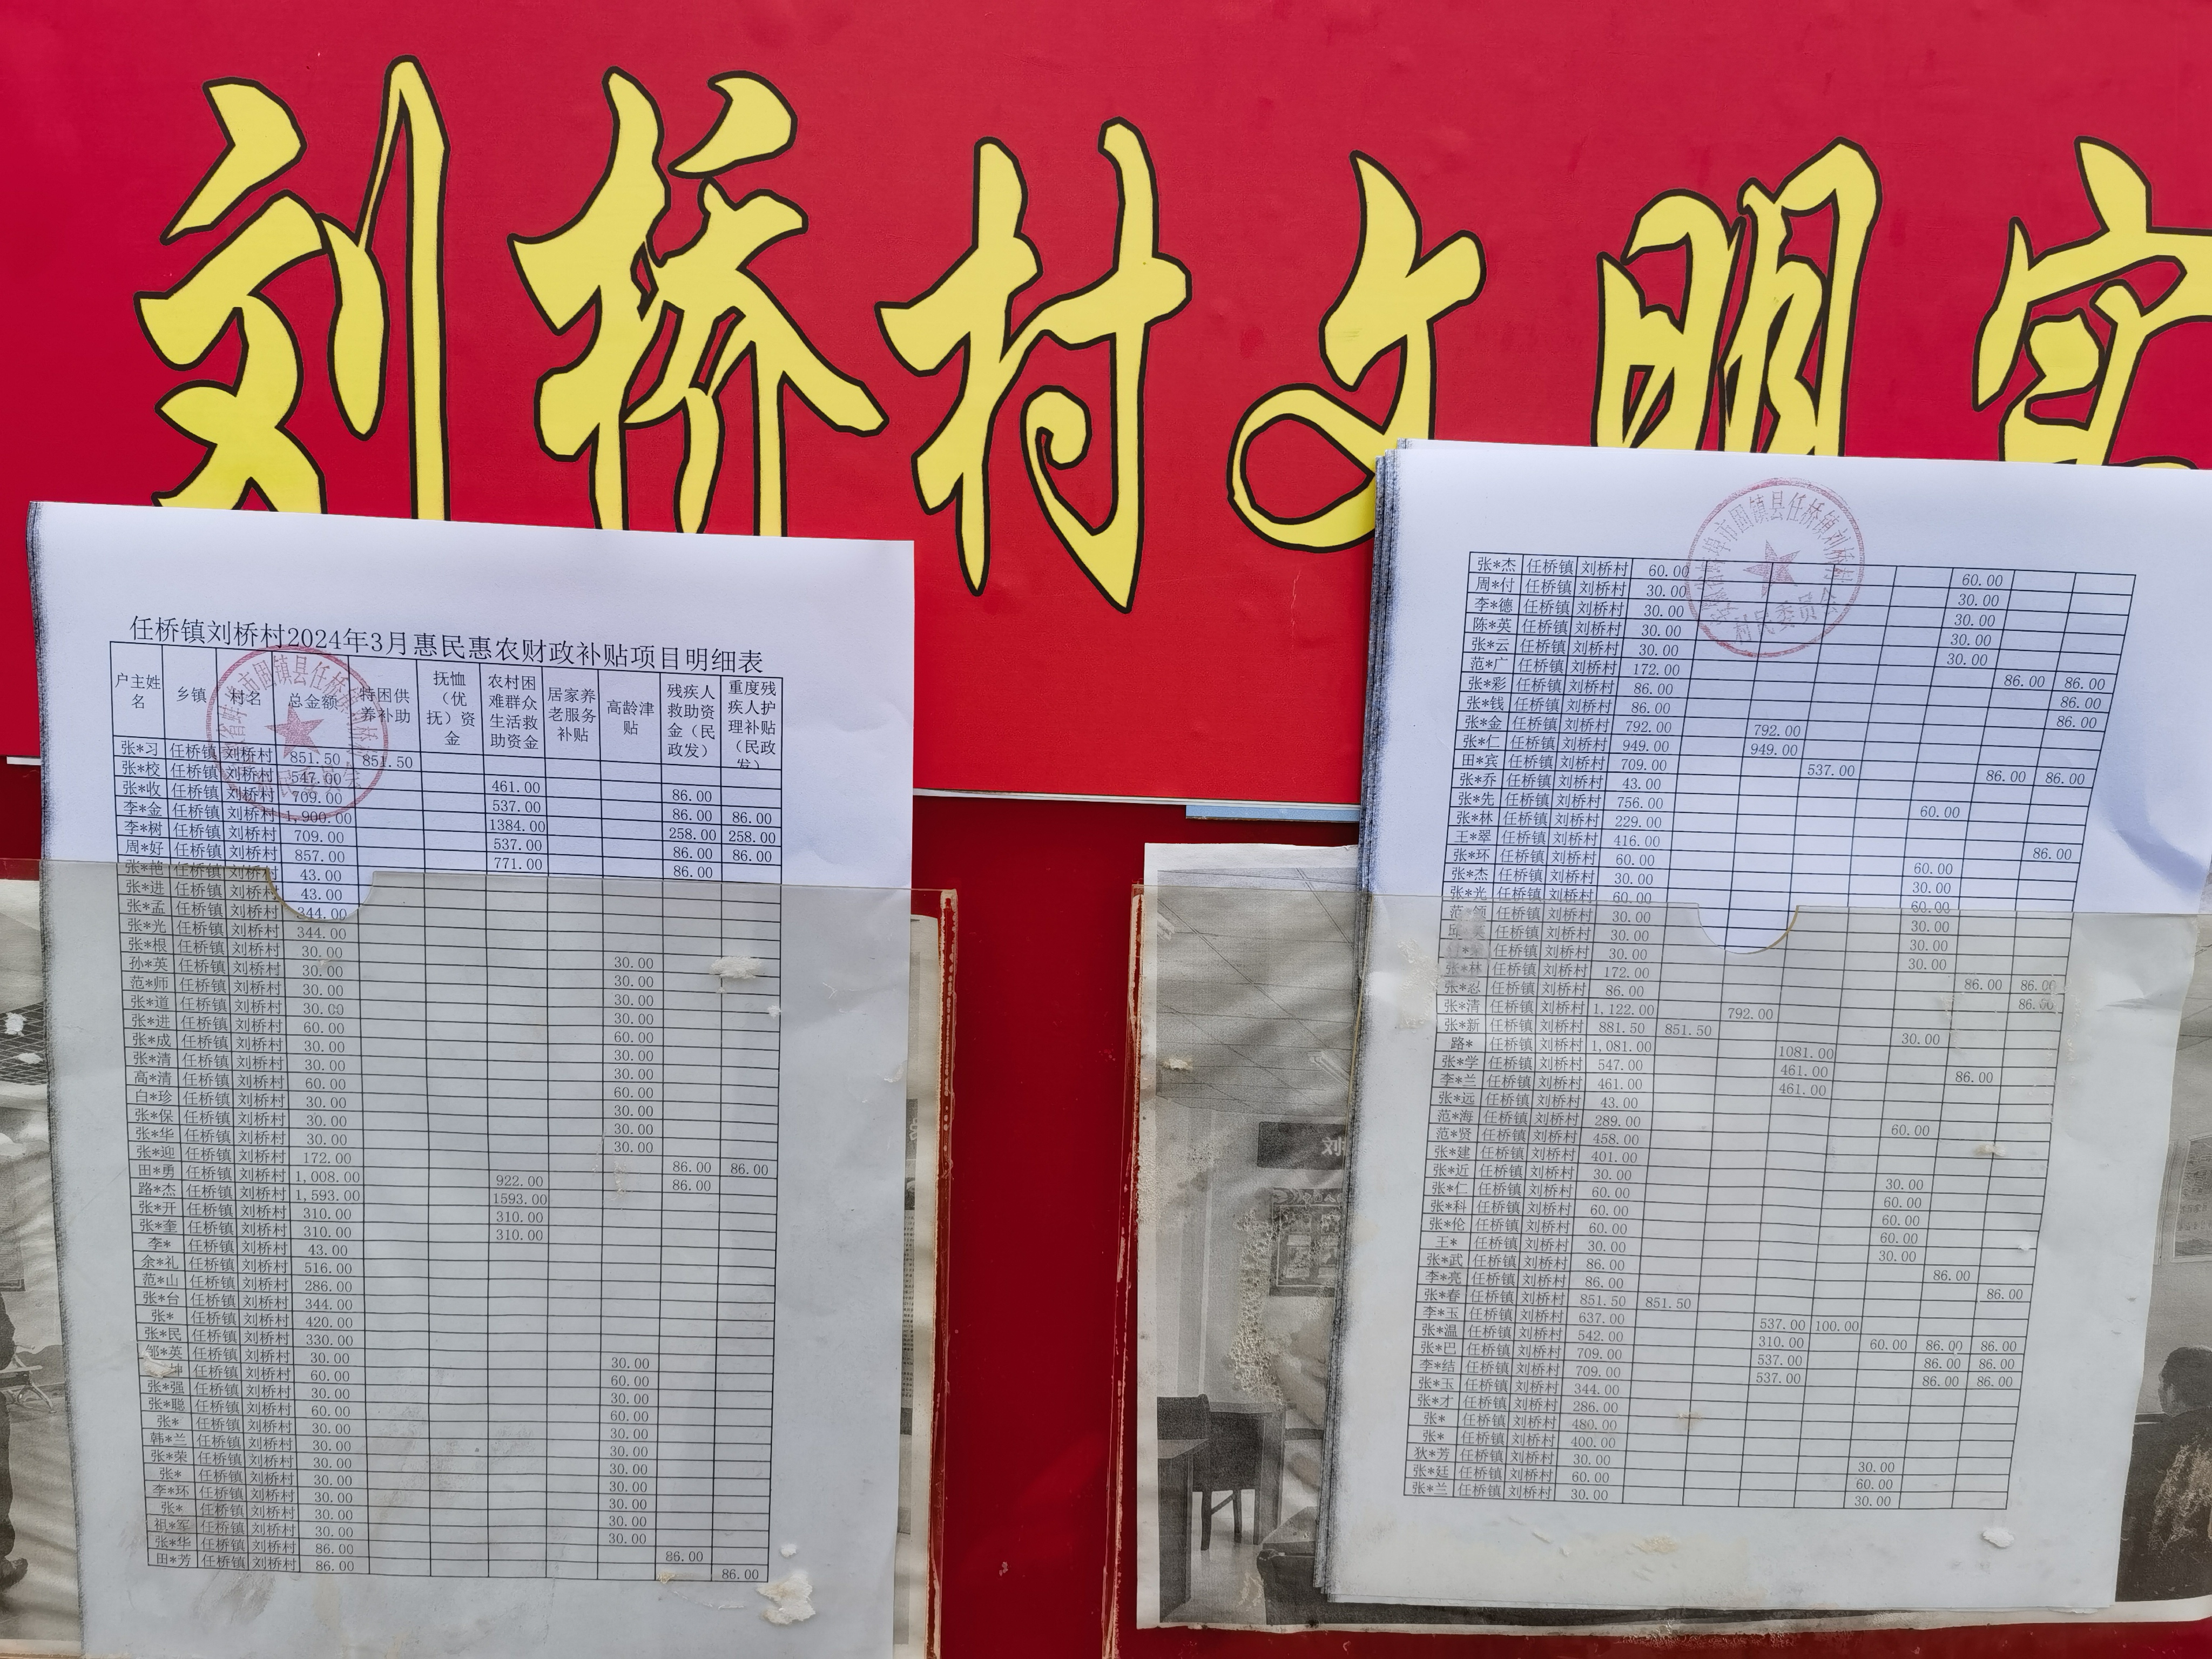 刘桥村文明实
任桥镇刘桥村2024年3月惠民惠农财政补贴项目明细表
户主姓名 乡镇 村名 总金额 特困供养补助 抚恤(优抚)资金 农村困难群众生活救助资金 居家养老服务补贴 高龄津贴 残疾人救助资金(民政发) 重度残疾人护理补贴(民政发)
张*习 任桥镇 刘桥村 851.50 851.50
张*校 任桥镇 刘桥村 547.00 461.00 86.00
张*收 任桥镇 刘桥村 709.00 537.00 86.00 86.00
李*金 任桥镇 刘桥村 1,900.00 1384.00 258.00 258.00
李*树 任桥镇 刘桥村 709.00 537.00 86.00 86.00
周*好 任桥镇 刘桥村 857.00 771.00 86.00
张*艳 任桥镇 刘桥村 43.00
张*进 任桥镇 刘桥村 43.00
张*孟 任桥镇 刘桥村 344.00
张*光 任桥镇 刘桥村 344.00
张*根 任桥镇 刘桥村 30.00 30.00
孙*英 任桥镇 刘桥村 30.00 30.00
范*师 任桥镇 刘桥村 30.00 30.00
张*道 任桥镇 刘桥村 30.00 30.00
张*进 任桥镇 刘桥村 60.00 60.00
张*成 任桥镇 刘桥村 30.00 30.00
张*清 任桥镇 刘桥村 30.00 30.00
高*清 任桥镇 刘桥村 60.00 60.00
白*珍 任桥镇 刘桥村 30.00 30.00
张*保 任桥镇 刘桥村 30.00 30.00
张*华 任桥镇 刘桥村 30.00 30.00
张*迎 任桥镇 刘桥村 172.00 86.00 86.00
田*勇 任桥镇 刘桥村 1,008.00 922.00 86.00
路*杰 任桥镇 刘桥村 1,593.00 1593.00
张*开 任桥镇 刘桥村 310.00 310.00
张*奎 任桥镇 刘桥村 310.00 310.00
李* 任桥镇 刘桥村 43.00
余*礼 任桥镇 刘桥村 516.00
范*山 任桥镇 刘桥村 286.00
张*台 任桥镇 刘桥村 344.00
张* 任桥镇 刘桥村 420.00
张*民 任桥镇 刘桥村 330.00
邹*英 任桥镇 刘桥村 30.00 30.00
坤 任桥镇 刘桥村 60.00 60.00
张*强 任桥镇 刘桥村 30.00 30.00
张*聪 任桥镇 刘桥村 60.00 60.00
张* 任桥镇 刘桥村 30.00 30.00
韩*兰 任桥镇 刘桥村 30.00 30.00
张*荣 任桥镇 刘桥村 30.00 30.00
张* 任桥镇 刘桥村 30.00 30.00
李*环 任桥镇 刘桥村 30.00 30.00
张* 任桥镇 刘桥村 30.00 30.00
祖*军 任桥镇 刘桥村 30.00 30.00
张*华 任桥镇 刘桥村 86.00 86.00
田*芳 任桥镇 刘桥村 86.00 86.00
张*杰 任桥镇 刘桥村 60.00 60.00
周*付 任桥镇 刘桥村 30.00 30.00
李*德 任桥镇 刘桥村 30.00 30.00
陈*英 任桥镇 刘桥村 30.00 30.00
张*云 任桥镇 刘桥村 30.00 30.00
范*广 任桥镇 刘桥村 172.00 86.00 86.00
张*彩 任桥镇 刘桥村 86.00 86.00
张*钱 任桥镇 刘桥村 86.00 86.00
张*金 任桥镇 刘桥村 792.00 792.00
张*仁 任桥镇 刘桥村 949.00 949.00
田*宾 任桥镇 刘桥村 709.00 537.00 86.00 86.00
张*乔 任桥镇 刘桥村 43.00
张*先 任桥镇 刘桥村 756.00 60.00
张*林 任桥镇 刘桥村 229.00
王*翠 任桥镇 刘桥村 416.00 86.00
张*环 任桥镇 刘桥村 60.00 60.00
张*杰 任桥镇 刘桥村 30.00 30.00
张*光 任桥镇 刘桥村 60.00 60.00
范*领 任桥镇 刘桥村 30.00 30.00
邱* 任桥镇 刘桥村 30.00 30.00
任桥镇 刘桥村 30.00 30.00
张*林 任桥镇 刘桥村 172.00 86.00 86.00
张*忍 任桥镇 刘桥村 86.00 86.00
张*清 任桥镇 刘桥村 1,122.00 792.00
张*新 任桥镇 刘桥村 881.50 851.50 30.00
路* 任桥镇 刘桥村 1,081.00 1081.00
张*学 任桥镇 刘桥村 547.00 461.00 86.00
李*兰 任桥镇 刘桥村 461.00 461.00
张*远 任桥镇 刘桥村 43.00
范*海 任桥镇 刘桥村 289.00 60.00
范*贤 任桥镇 刘桥村 458.00
张*建 任桥镇 刘桥村 401.00
张*近 任桥镇 刘桥村 30.00 30.00
张*仁 任桥镇 刘桥村 60.00 60.00
张*科 任桥镇 刘桥村 60.00 60.00
张*伦 任桥镇 刘桥村 60.00 60.00
王* 任桥镇 刘桥村 30.00 30.00
张*武 任桥镇 刘桥村 86.00 86.00
李*亮 任桥镇 刘桥村 86.00 86.00
张*春 任桥镇 刘桥村 851.50 851.50
李*玉 任桥镇 刘桥村 637.00 537.00 100.00
张*温 任桥镇 刘桥村 542.00 310.00 60.00 86.00 86.00
张*巴 任桥镇 刘桥村 709.00 537.00 86.00 86.00
李*结 任桥镇 刘桥村 709.00 537.00 86.00 86.00
张*玉 任桥镇 刘桥村 344.00
张*才 任桥镇 刘桥村 286.00
张* 任桥镇 刘桥村 480.00
张* 任桥镇 刘桥村 400.00
狄*芳 任桥镇 刘桥村 30.00 30.00
张*廷 任桥镇 刘桥村 60.00 60.00
张*兰 任桥镇 刘桥村 30.00 30.00